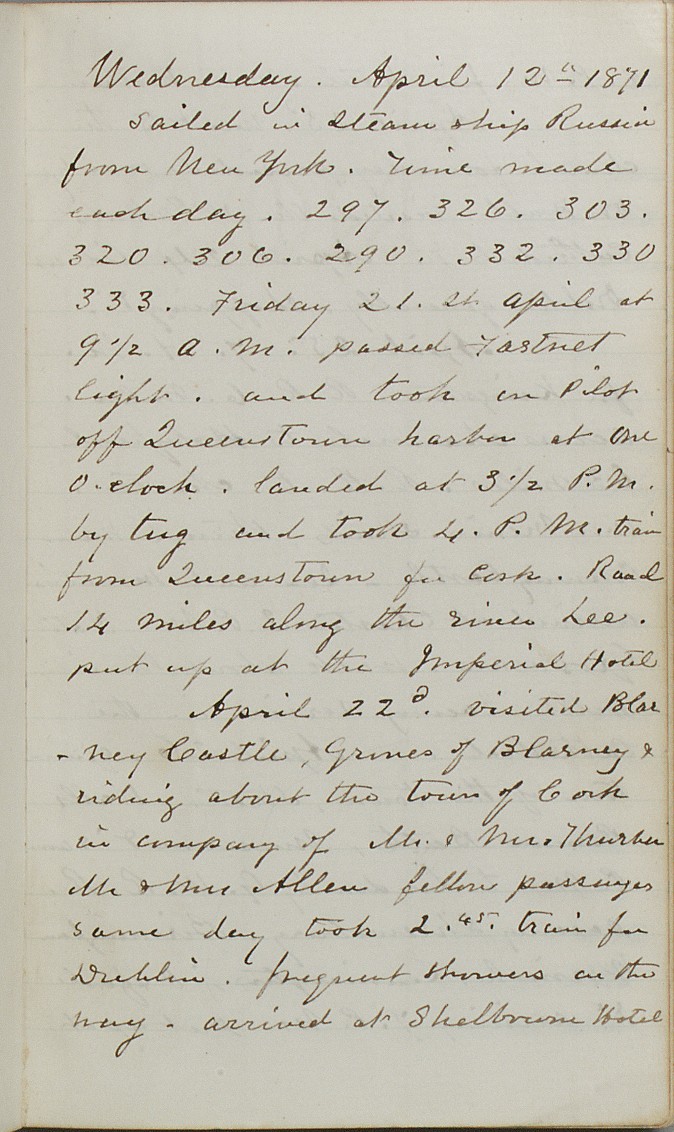 Wednesday. April 12th 1871
Sailed in Steam ship Russia
from New York. Time made
each day. 297. 326. 303.
320. 306. 290. 332. 330
333. Friday 21.st April at
9 1/2 A.M. passed Fastnet
light. and took on Pilot
off Queenstown harbor at one
O.clock. landed at 3 1/2 P.M.
by tug and took 4. P.M. train
from Queenstown for Cork. Road
14 miles along the river Lee.
put up at the Imperial Hotel
April 22d. visited Blar
- ney Castle, Groves of Blarney &
riding about the town of Cork
in company of Mr. & Mrs. Thurber
Mr & Mrs Allen fellow passengers
same day took 2.45. train for
Dublin. frequent showers on the
way. arrived at Shelbourne Hotel